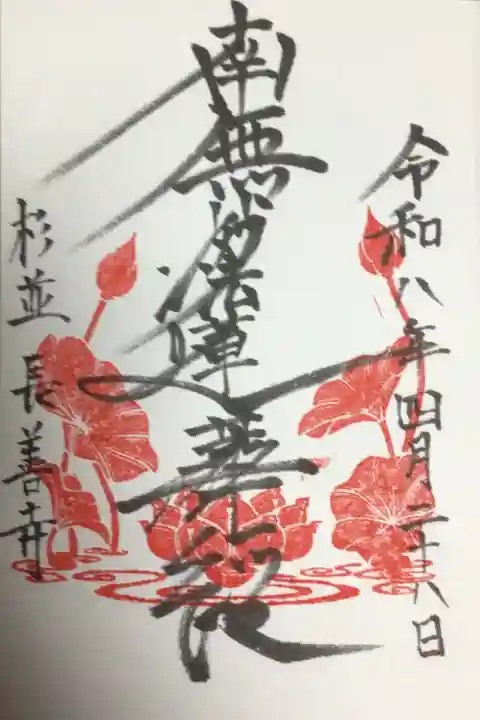 令和八年四月二十八日
南無妙法蓮華経
杉並 長善寺